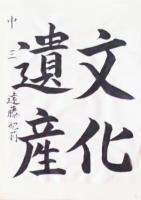 文化
遺産
中三 遠藤